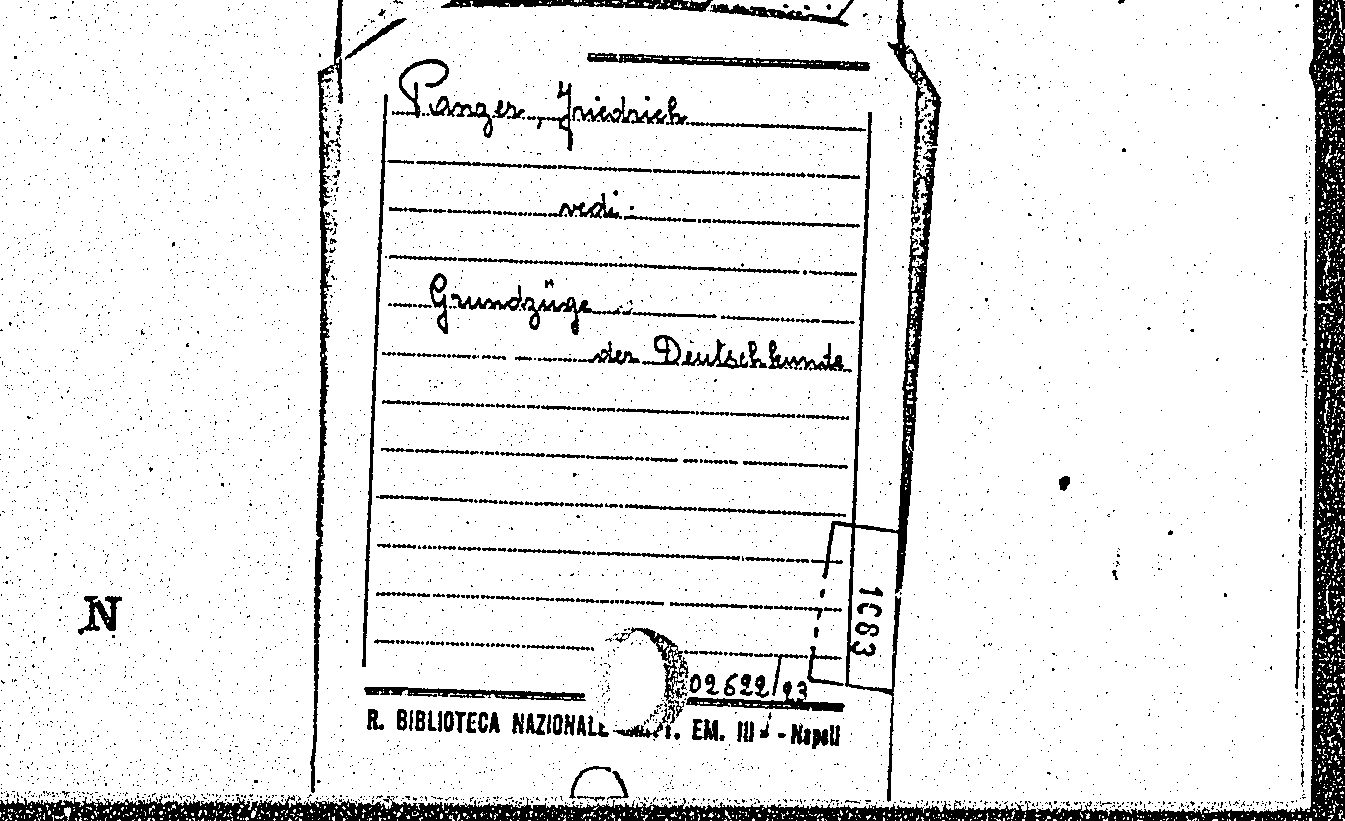 Panzer, Friedrich
vedi:
Grundzüge
der Deutschkunde
1083
N
02622/93
R. BIBLIOTECA NAZIONALE EM. III - Napoli